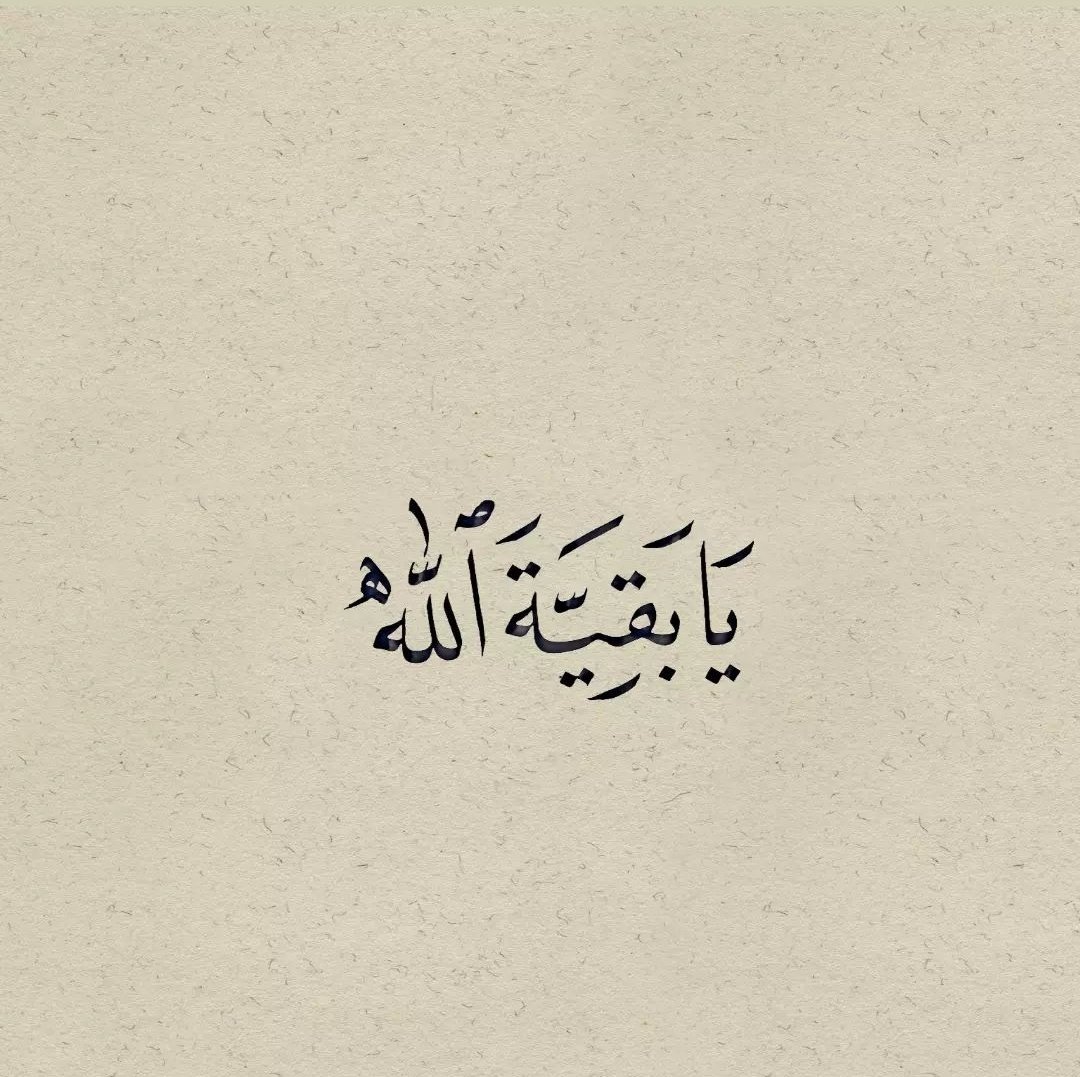 يَا بَقِيَّةَ ٱللّٰه